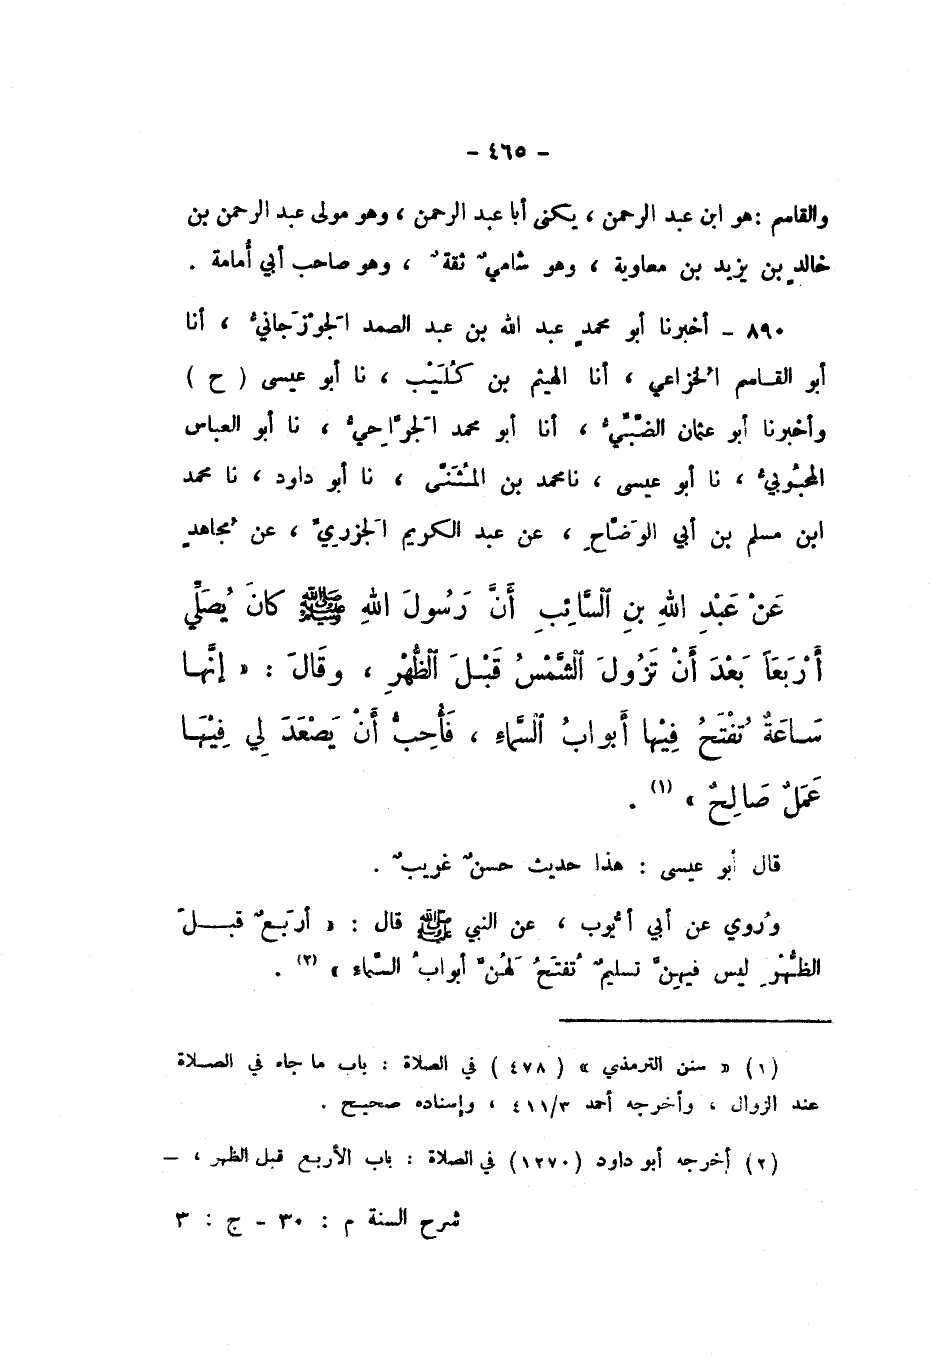 - ٤٦٥ -
والقاسم : هو ابن عبد الرحمن ، يكنى أبا عبد الرحمن ، وهو مولى عبد الرحمن بن
خالدٍ بن يزيد بن معاوية ، وهو شاميٌّ ثقةٌ ، وهو صاحب أبي أُمامة .
٨٩٠ - أخبرنا أبو محمدٍ عبد الله بن عبد الصمد الجَوْزَجانيُّ ، أنا
أبو القاسم الخُزاعي ، أنا الهيثم بن كُلَيْب ، نا أبو عيسى ( ح )
وأخبرنا أبو عثمان الضَّبِّيُّ ، أنا أبو محمد الجَرَّاحِيُّ ، نا أبو العباس
المحبُوبيُّ ، نا أبو عيسى ، نامحمد بن المُثَنَّى ، نا أبو داود ، نا محمد
ابن مسلم بن أبي الوَضَّاحِ ، عن عبد الكريم الجَزَرِيِّ ، عن مُجاهدٍ
عَنْ عَبْدِ اللهِ بنِ السَّائِبِ أَنَّ رَسُولَ اللهِ ﷺ كانَ يُصَلِّي
أَرْبَعَاً بَعْدَ أَنْ تَزُولَ الشَّمْسُ قَبْلَ الظُّهْرِ ، وقَالَ : « إنَّها
سَاعَةٌ تُفْتَحُ فِيْها أَبوابُ السَّماءِ ، فَأُحِبُّ أَنْ يَصْعَدَ لِي فِيْهَا
عَمَلٌ صَالِحٌ » (١) .
قال أبو عيسى : هذا حديث حسنٌ غريبٌ .
ورُوي عن أبي أيُّوب ، عن النبي ﷺ قال : « أربَعٌ قبلَ
الظُّهْرِ ليس فيهِنَّ تسليمٌ تُفتَحُ لَهُنَّ أبوابُ السَّماء » (٢) .
(١) « سنن الترمذي » ( ٤٧٨ ) في الصلاة : باب ما جاء في الصلاة
عند الزوال ، وأخرجه أحمد ٤١١/٣ ، وإسناده صحيح .
(٢) أخرجه أبو داود (١٢٧٠) في الصلاة : باب الأربع قبل الظهر ، —
شرح السنة م : ٣٠ - ج : ٣